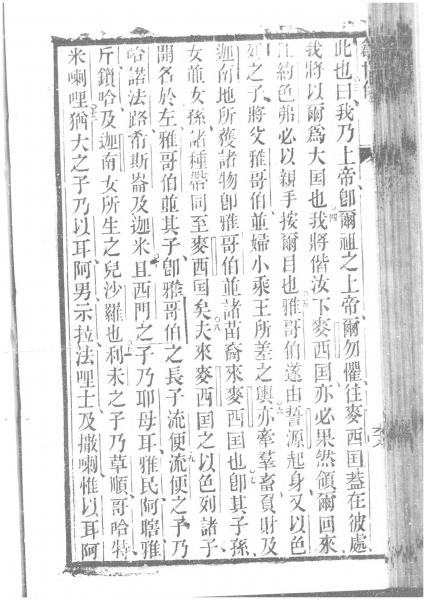 此也曰我乃上帝卽爾祖之上帝爾勿懼往麥西国葢在彼處
我將以爾爲大国也我將偕汝下麥西国亦必果然領爾回來
且約色弗必以親手按爾目也雅哥伯遂由誓源起身又以色
列之子將父雅哥伯並婦小乘王所差之輿亦牽羣畜貟財及
迦南地所獲諸物卽雅哥伯並諸苗裔來麥西国也卽其子孫
女並女孫諸種帶同至麥西国矣夫來麥西国之以色列諸子
開名於左雅哥伯並其子卽雅哥伯之長子流便流便之子乃
哈諾法路希斯崙及迦米且西門之子乃耶母耳雅民阿瞎雅
斤鎖哈及迦南女所生之兒沙羅也利未之子乃草順哥哈特
米喇哩猶大之子乃以耳阿男示拉法哩士及撒喇惟以耳阿